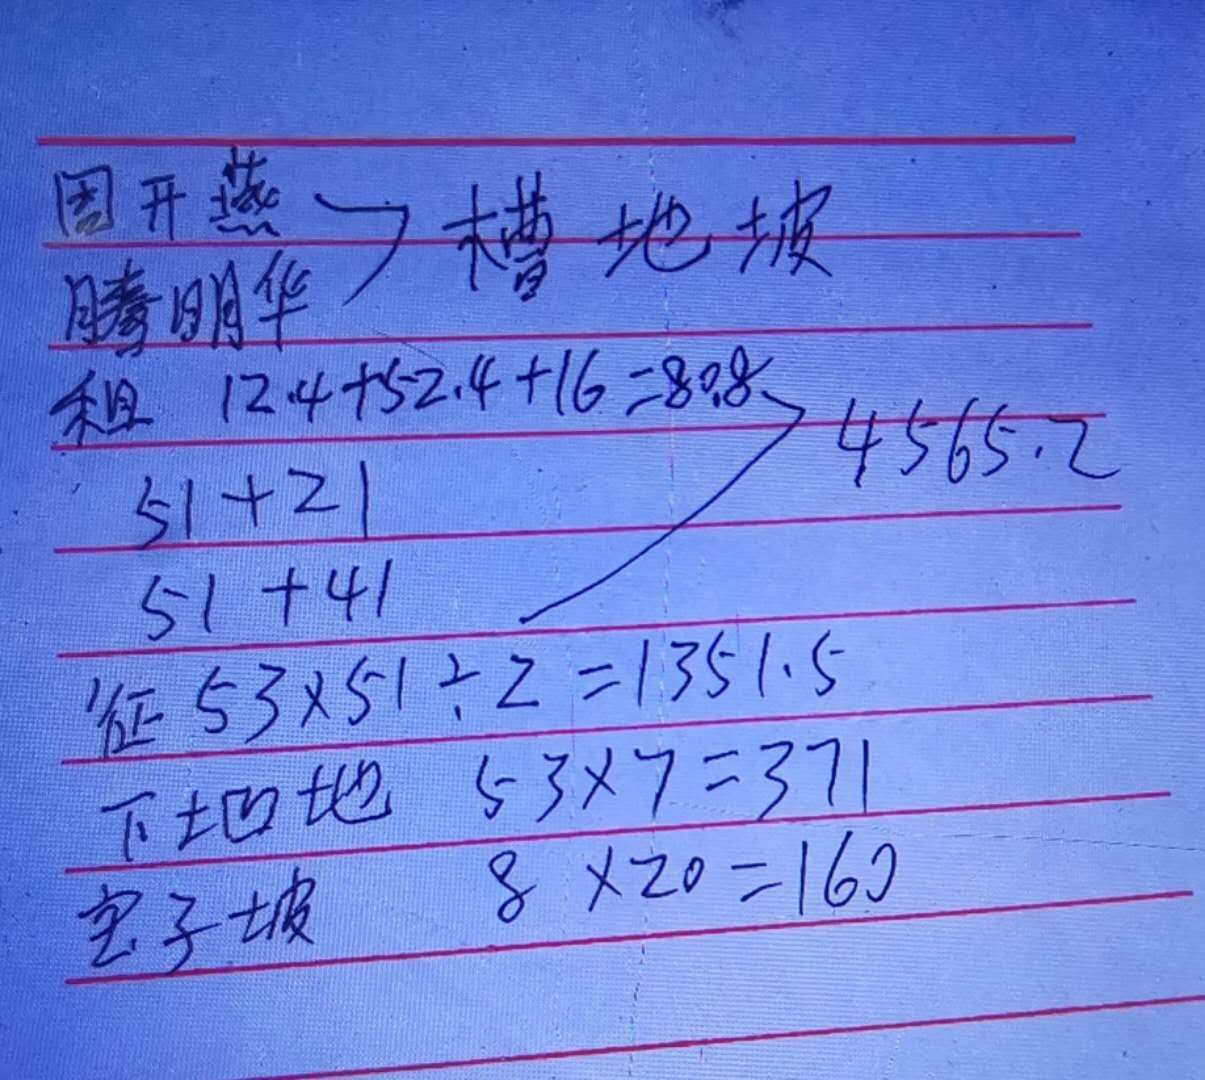 周开燕
槽地坡
腾明华
租 12.4+52.4+16=80.8
4565.2
51+21
51+41
征 53×51÷2=1351.5
下凹地 53×7=371
子坡 8×20=160